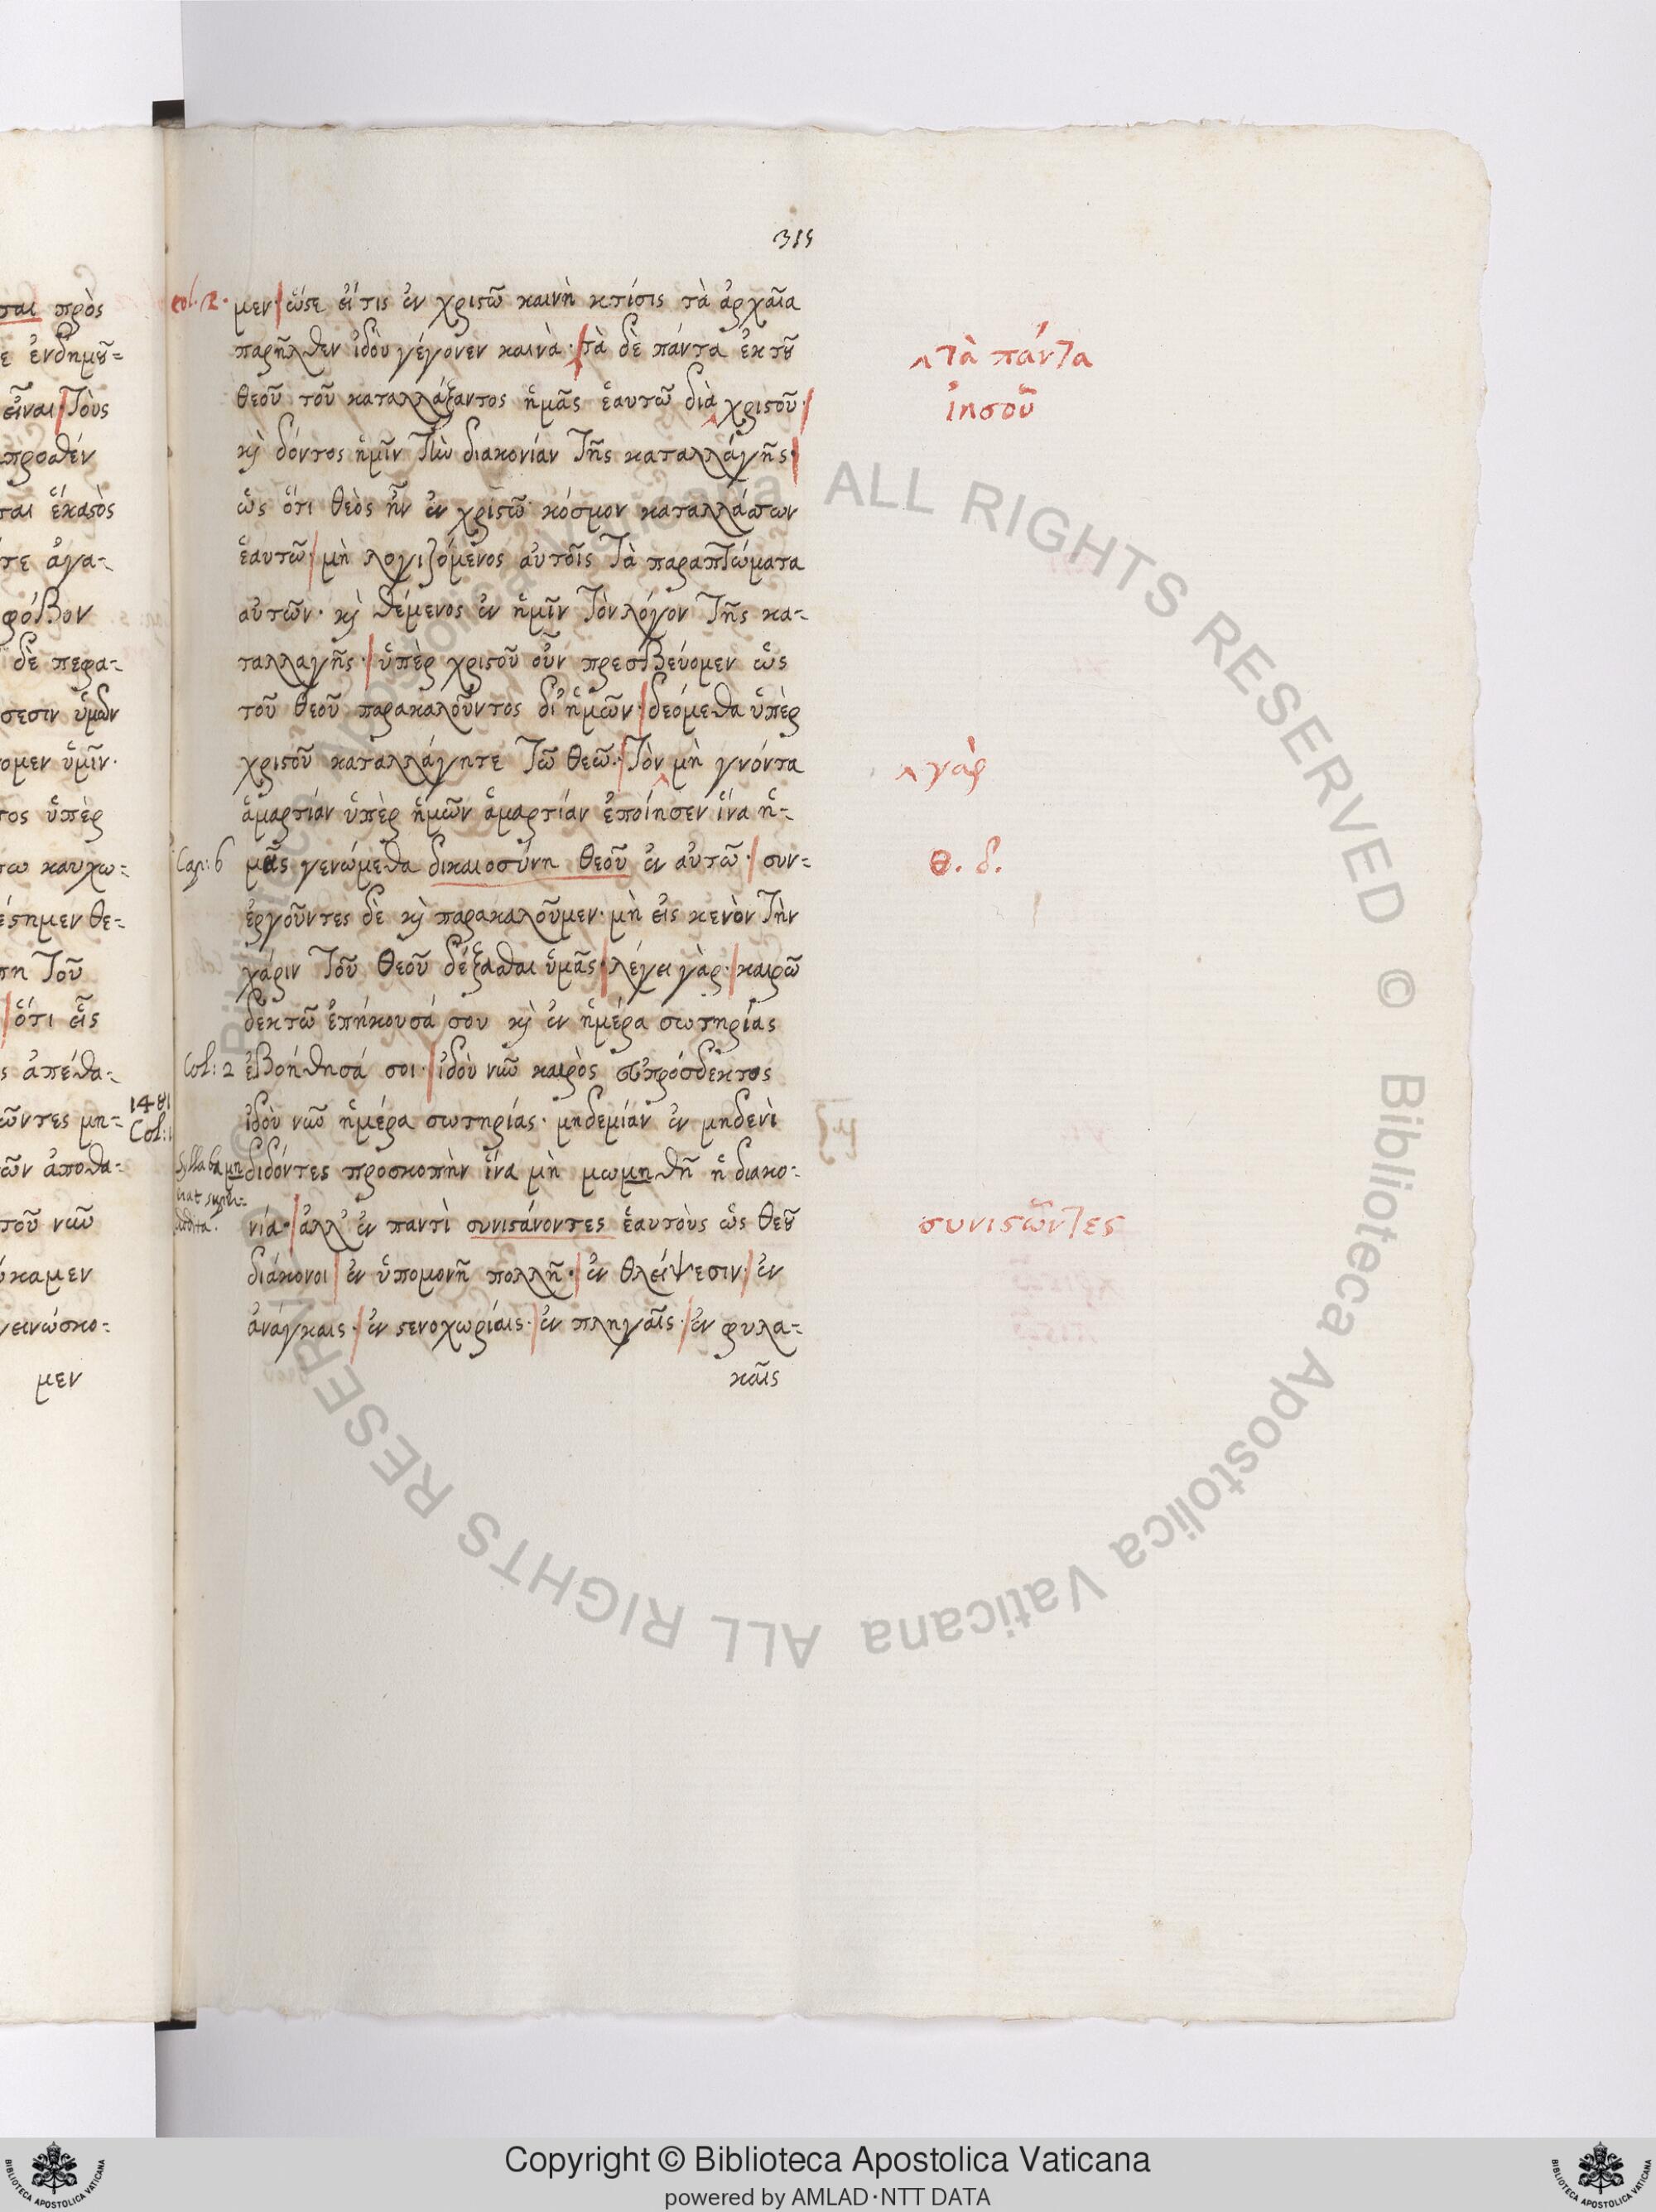 315
col. 2. μεν· ὥστε εἴ τις ἐν χριστῶ καινὴ κτίσις τὰ ἀρχαῖα
παρῆλθεν ἰδοὺ γέγονεν καινὰ· τὰ δὲ πάντα ἐκ τοῦ
^ τὰ πάντα
θεοῦ τοῦ καταλλάξαντος ἡμᾶς ἑαυτῶ διὰ χριστοῦ·
ἰησοῦ
κὶ δόντος ἡμῖν τὴν διακονίαν τῆς καταλλάγῆς·
ὡς ὅτι θεὸς ἦν ἐν χριστῶ κόσμον καταλλάσσων
ἑαυτῶ· μὴ λογιζόμενος αὐτοῖς τὰ παραπτώματα
αὐτῶν· κὶ θέμενος ἐν ἡμῖν τὸν λόγον τῆς κα-
ταλλαγῆς· ὑπὲρ χριστοῦ οὖν πρεσβεύομεν ὡς
τοῦ θεοῦ παρακαλοῦντος δι' ἡμῶν· δεόμεθα ὑπὲρ
χριστοῦ καταλλάγητε τῶ θεῶ· τὸν μὴ γνόντα
^ γὰρ
ἁμαρτίαν ὑπὲρ ἡμῶν ἁμαρτίαν ἐποίησεν ἵνα ἡ-
Cap: 6 μᾶς γενώμεθα δικαιοσύνη θεοῦ ἐν αὐτῶ· συν-
θ. δ.
εργοῦντες δὲ κὶ παρακαλοῦμεν· μὴ εἰς κενὸν τὴν
χάριν τοῦ θεοῦ δέξασθαι ὑμᾶς· λέγει γὰρ· καιρῶ
δεκτῶ ἐπήκουσά σου κὶ ἐν ἡμέρα σωτηρίας
Col: 2 ἐβοήθησά σοι· ἰδοὺ νῦν καιρὸς εὐπρόσδεκτος
ἰδοὺ νῦν ἡμέρα σωτηρίας· μηδεμίαν ἐν μηδενὶ
διδόντες προσκοπὴν ἵνα μὴ μωμηθῆ ἡ διακο-
Syllaba μη
νία· ἀλλ' ἐν παντὶ συνιστάνοντες ἑαυτοὺς ὡς θεοῦ
συνιστῶντες
διάκονοι ἐν ὑπομονῆ πολλῆ· ἐν θλείψεσιν· ἐν
ἀνάγκαις· ἐν στενοχωρίαις· ἐν πληγαῖς· ἐν φυλα-
καῖς
πρὸς
ἐνδημοῦ-
εἶναι· τοὺς
ἕκαστὸς
ἀγα-
φόβον
δὲ πεφα-
ὑμῶν
ομεν ὑμῖν·
ὑπὲρ
καυχω-
θε-
τοῦ
ὅτι εἷς
ἀπέθα-
1481
Col: 1
ῶντες μη-
ἀποθα-
τοῦ νῦν
γεινώσκο-
μεν
Copyright © Biblioteca Apostolica Vaticana
powered by AMLAD·NTT DATA
© Biblioteca Apostolica Vaticana ALL RIGHTS RESERVED © Biblioteca Apostolica Vaticana ALL RIGHTS RESERVED
BIBLIOTECA APOSTOLICA VATICANA
BIBLIOTECA APOSTOLICA VATICANA